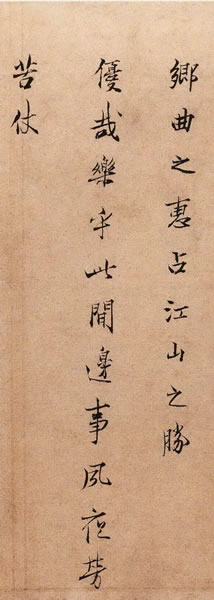 鄉曲之惠占江山之勝
優哉樂乎此間邊事夙夜勞
苦仗